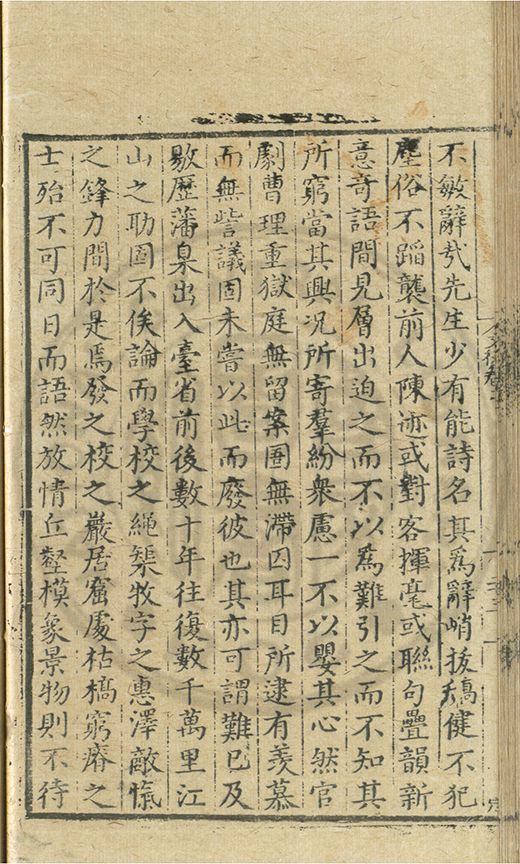 不敏辭㢤先生少有能詩名其爲辭峭拔矯健不犯
塵俗不蹈襲前人陳迹或對客揮毫或聯句疊韻新
意奇語間見層出迫之而不以爲難引之而不知其
所窮當其興況所寄羣紛衆慮一不以嬰其心然官
劇曹理重獄庭無留案圄無滯囚耳目所逮有羨慕
而無訾議固未嘗以此而廢彼也其亦可謂難已及
敭歷藩臬出入臺省前後數十年往復數千萬里江
山之助固不俟論而學校之繩榘牧字之惠澤敵愾
之鋒力間於是焉發之校之嚴居窟處枯槁窮瘠之
士殆不可同日而語然放情丘壑模象景物則不待